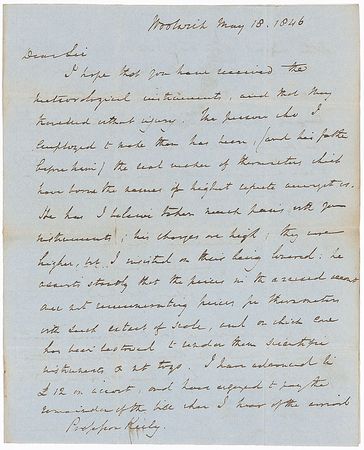 Woolwich May 18. 1846
Dear Sir
I hope that you have received the
meteorological instruments, and that they
travelled without injury. The person who I
employed to make them has been, (and his father
before him) the real maker of thermometers which
have borne the names of highest repute amongst us.
He has I believe taken much pains with your
instruments; his charges are high; they were
higher, but I insisted on their being lowered: he
asserts strongly that the prices in the annexed account
are not remunerating prices for thermometers
with such extent of scale, and on which care
has been bestowed to render them scientific
instruments & not toys. I have advanced him
£12 on account, and have agreed to pay the
remainder of the bill when I hear of the arrival
Professor Keely.